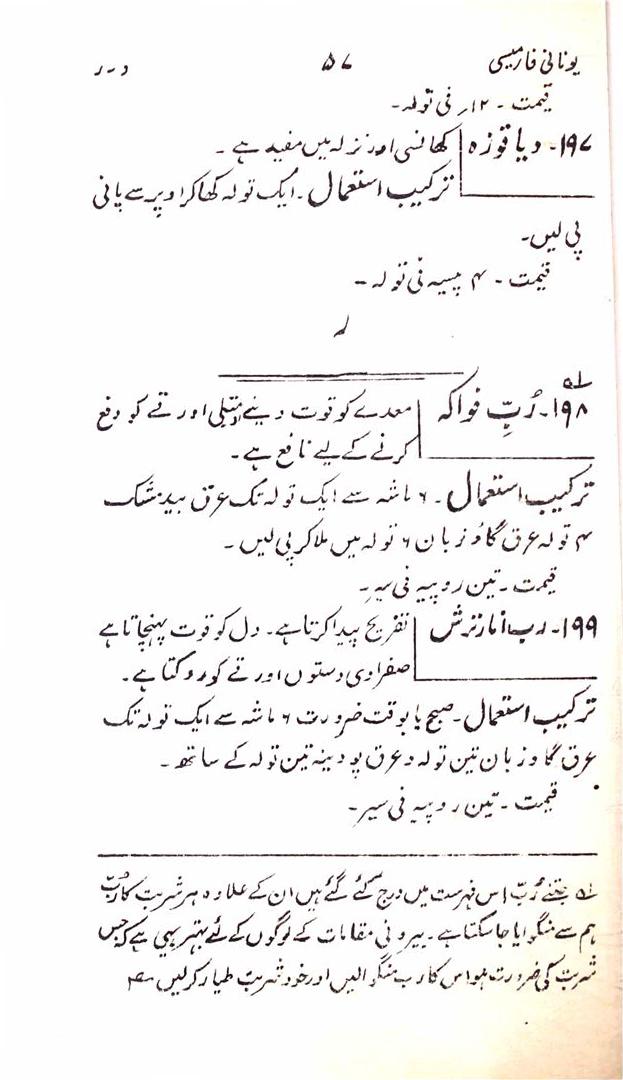 یونانی فارمیسی ۵۷ د-ر
قیمت - ۱۲؍ فی تولہ-
۱۹۷- دیاقوزہ کھانسی اور نزلہ میں مفید ہے -
ترکیب استعمال - ایک تولہ کھا کر اوپر سے پانی
پی لیں-
قیمت - ۴ پیسہ فی تولہ -
ر
۱۹۸- رُبِّ فواکہ ؎۱ معدے کو قوت دینے متلی اور قے کو دفع
کرنے کے لیے نافع ہے -
ترکیب استعمال - ۶ ماشہ سے ایک تولہ تک عرق بید مشک
۴ تولہ عرق گاؤ زبان ۶ تولہ میں ملا کر پی لیں -
قیمت - تین روپیہ فی سیر-
۱۹۹- رب انار ترش تفریح پیدا کرتا ہے - دل کو قوت پہنچاتا ہے
صفراوی دستوں اور قے کو روکتا ہے -
ترکیب استعمال - صبح یا بوقت ضرورت ۶ ماشہ سے ایک تولہ تک
عرق گاوزبان تین تولہ و عرق پودینہ تین تولہ کے ساتھ -
قیمت - تین روپیہ فی سیر-
؎۱ جتنے رُبّ اس فہرست میں درج کئے گئے ہیں ان کے علاوہ ہر شربت کا رُبّ
ہم سے منگوایا جا سکتا ہے - بیرونی مقامات کے لوگوں کے لئے بہتر یہی ہے کہ جس
شربت کی ضرورت ہو اس کا رب منگوالیں اور خود شربت طیار کر لیں -